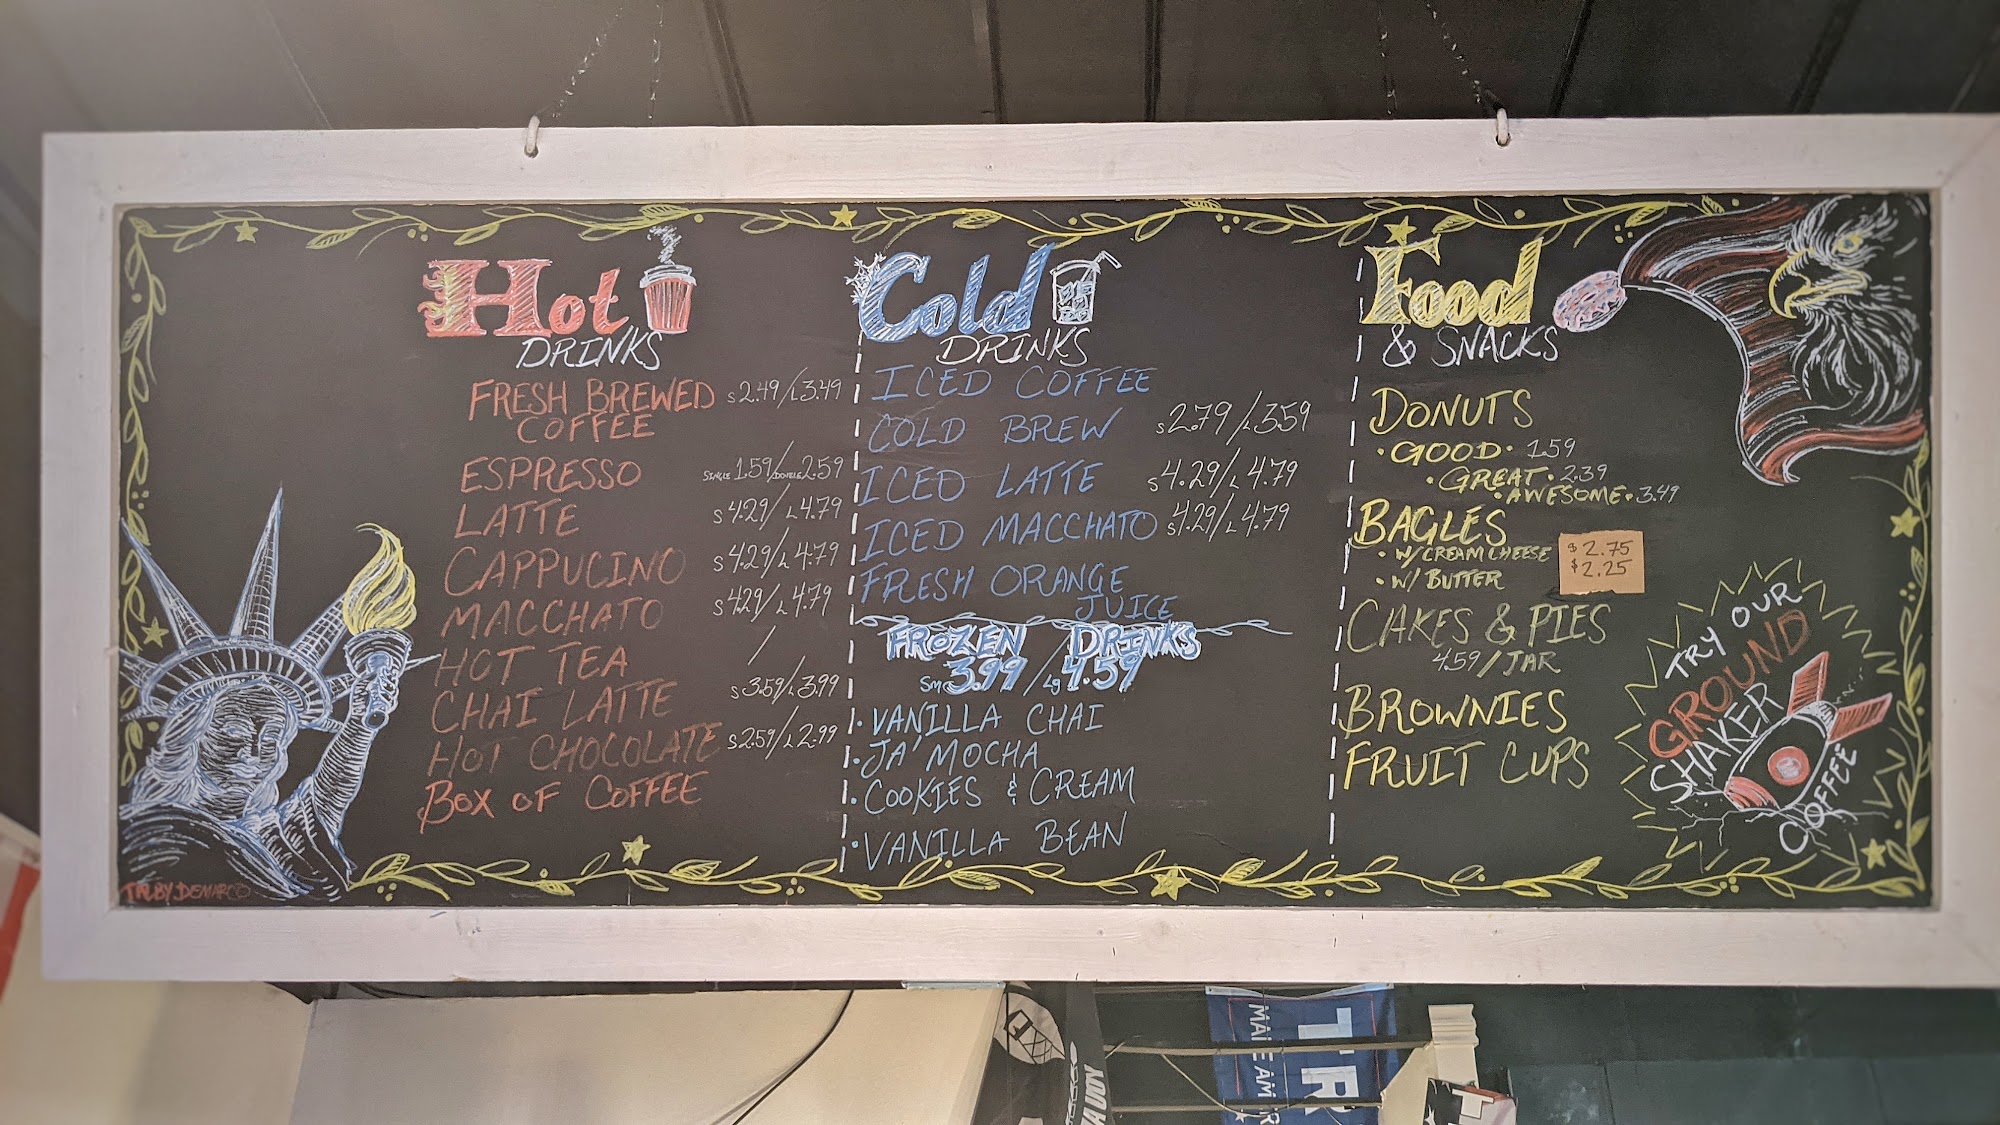 Hot
DRINKS
FRESH BREWED S 2.49/L 3.49
COFFEE
ESPRESSO SINGLE 1.59/DOUBLE 2.59
LATTE S 4.29/L 4.79
CAPPUCINO S 4.29/L 4.79
MACCHATO S 4.29/L 4.79
HOT TEA /
CHAI LATTE S 3.59/L 3.99
HOT CHOCOLATE S 2.59/L 2.99
BOX OF COFFEE
Cold
DRINKS
ICED COFFEE
COLD BREW S 2.79/L 3.59
ICED LATTE S 4.29/L 4.79
ICED MACCHATO S 4.29/L 4.79
FRESH ORANGE
JUICE
FROZEN DRINKS
Sm 3.99/Lg 4.59
• VANILLA CHAI
• JA' MOCHA
• COOKIES & CREAM
• VANILLA BEAN
Food
& SNACKS
DONUTS
• GOOD • 1.59
• GREAT • 2.39
• AWESOME • 3.49
BAGLES
• W/ CREAM CHEESE $2.75
• W/ BUTTER $2.25
CAKES & PIES
4.59 / JAR
BROWNIES
FRUIT CUPS
TRY OUR
GROUND
SHAKER
COFFEE
DEMARCO
TR
MAKE AM